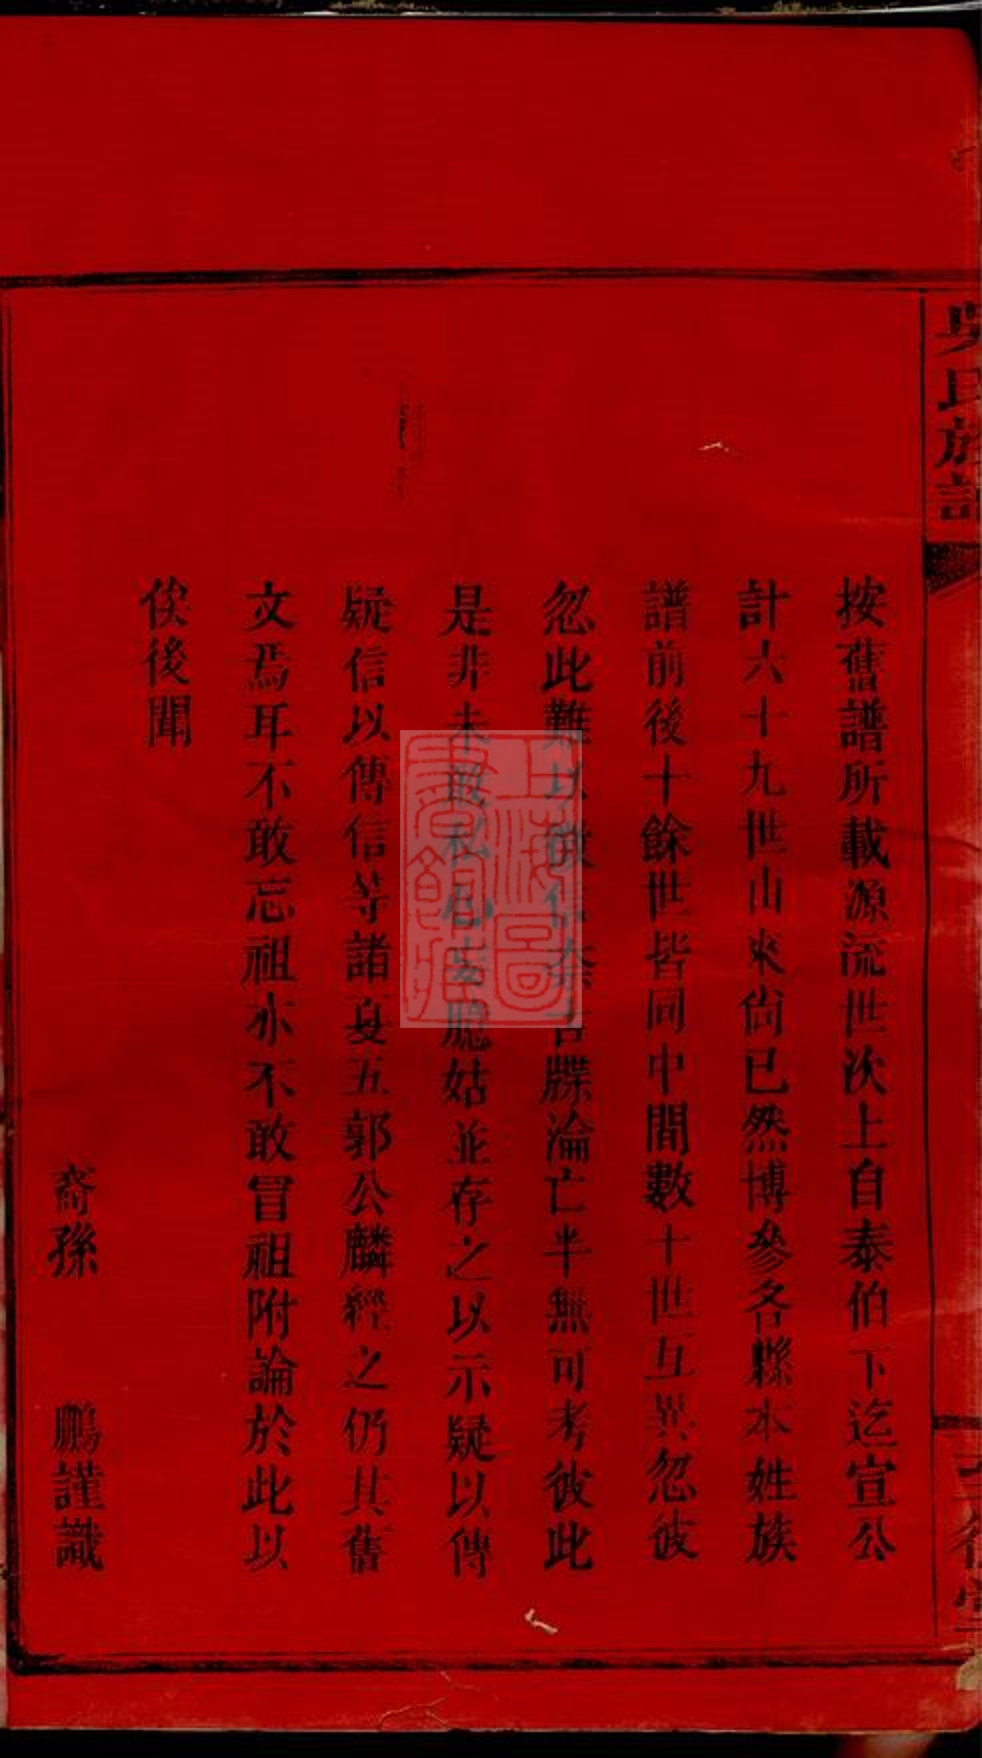 吳氏族譜
按舊譜所載源流世次上自泰伯下迄宣公
計六十九世由來尙已然博參各縣本姓族
譜前後十餘世皆同中間數十世互異忽彼
忽此難以徵信奈古牒淪亡半無可考彼此
是非未敢私心妄臆姑並存之以示疑以傳
疑信以傳信等諸夏五郭公麟經之仍其舊
文焉耳不敢忘祖亦不敢冒祖附論於此以
俟後聞
裔孫 鵬謹識
上海圖書館藏